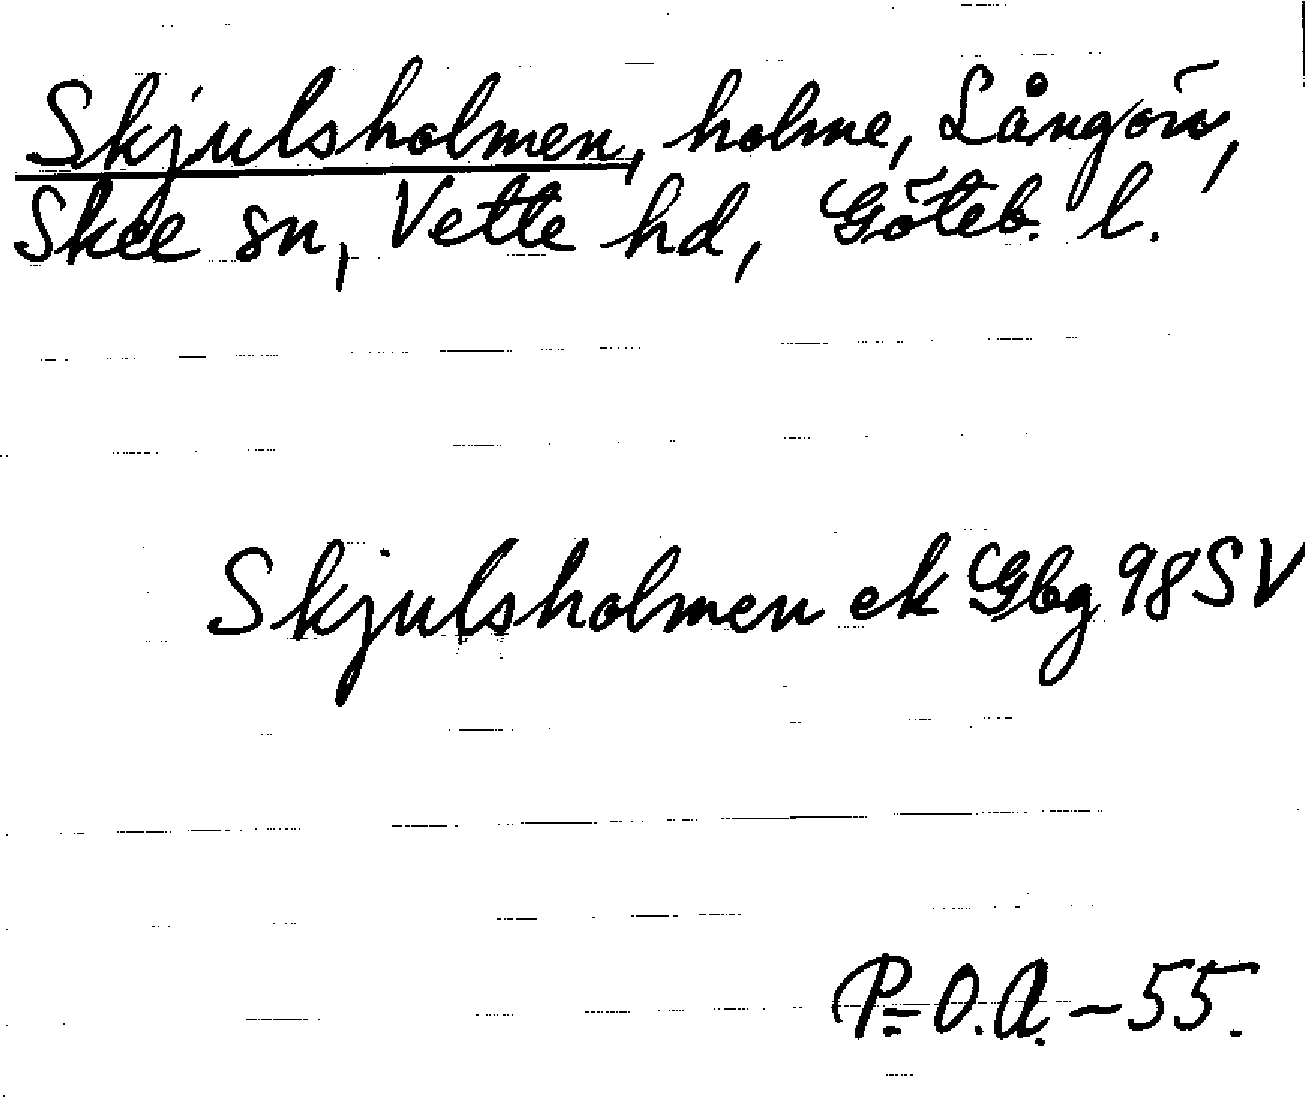 Skjulsholmen, holme, Långön,
Skee sn, Vette hd, Göteb. l.
Skjulsholmen ek Gbg 98 SV
P.-O.A. -55.